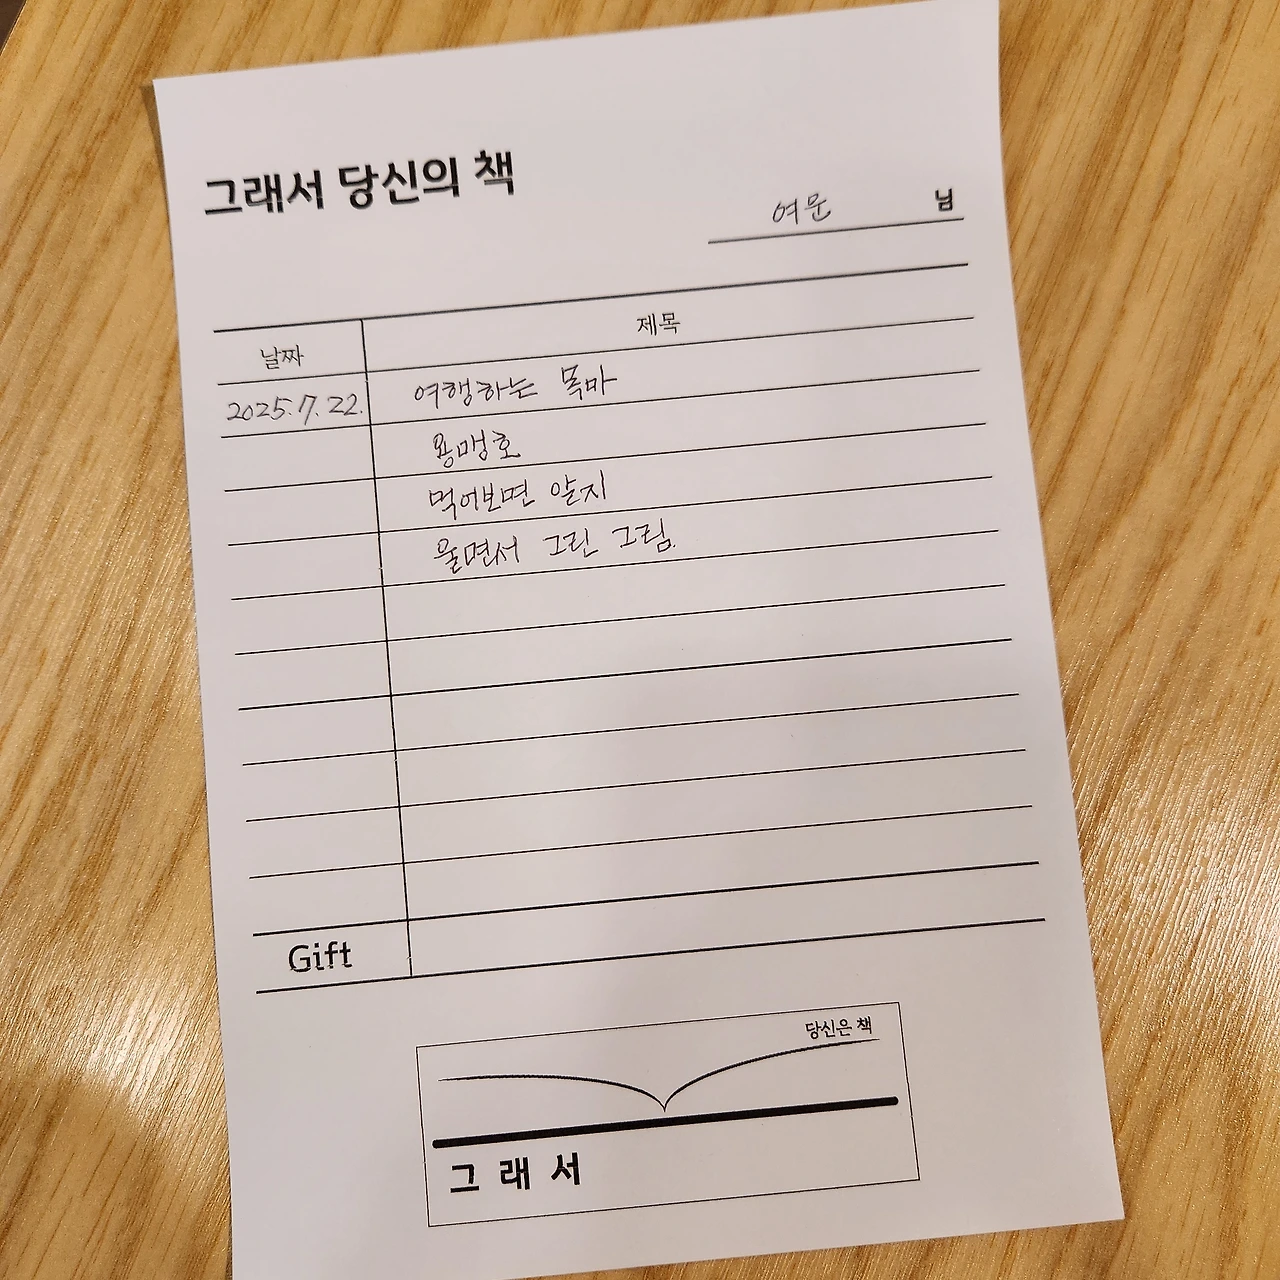 그래서 당신의 책
여운 님
날짜 제목
2025.7.22. 여행하는 목마
용맹호
먹어보면 알지
울면서 그린 그림.
Gift
당신은 책
그래서